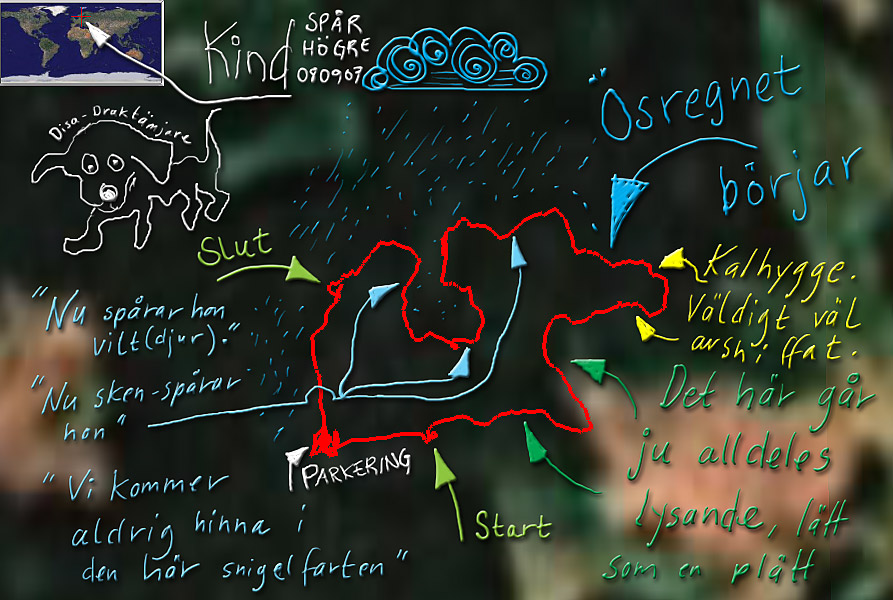 Kind
SPÅR
HÖGRE
080907
Disa-Draktämjare
"Ösregnet
börjar
Slut
Kalhygge.
Väldigt väl
avsniffat.
"Nu spårar hon
vilt(djur)."
"Nu sken-spårar
hon"
Det här går
ju alldeles
lysande, lätt
som en plätt
PARKERING
Start
"Vi kommer
aldrig hinna i
den här snigelfarten"